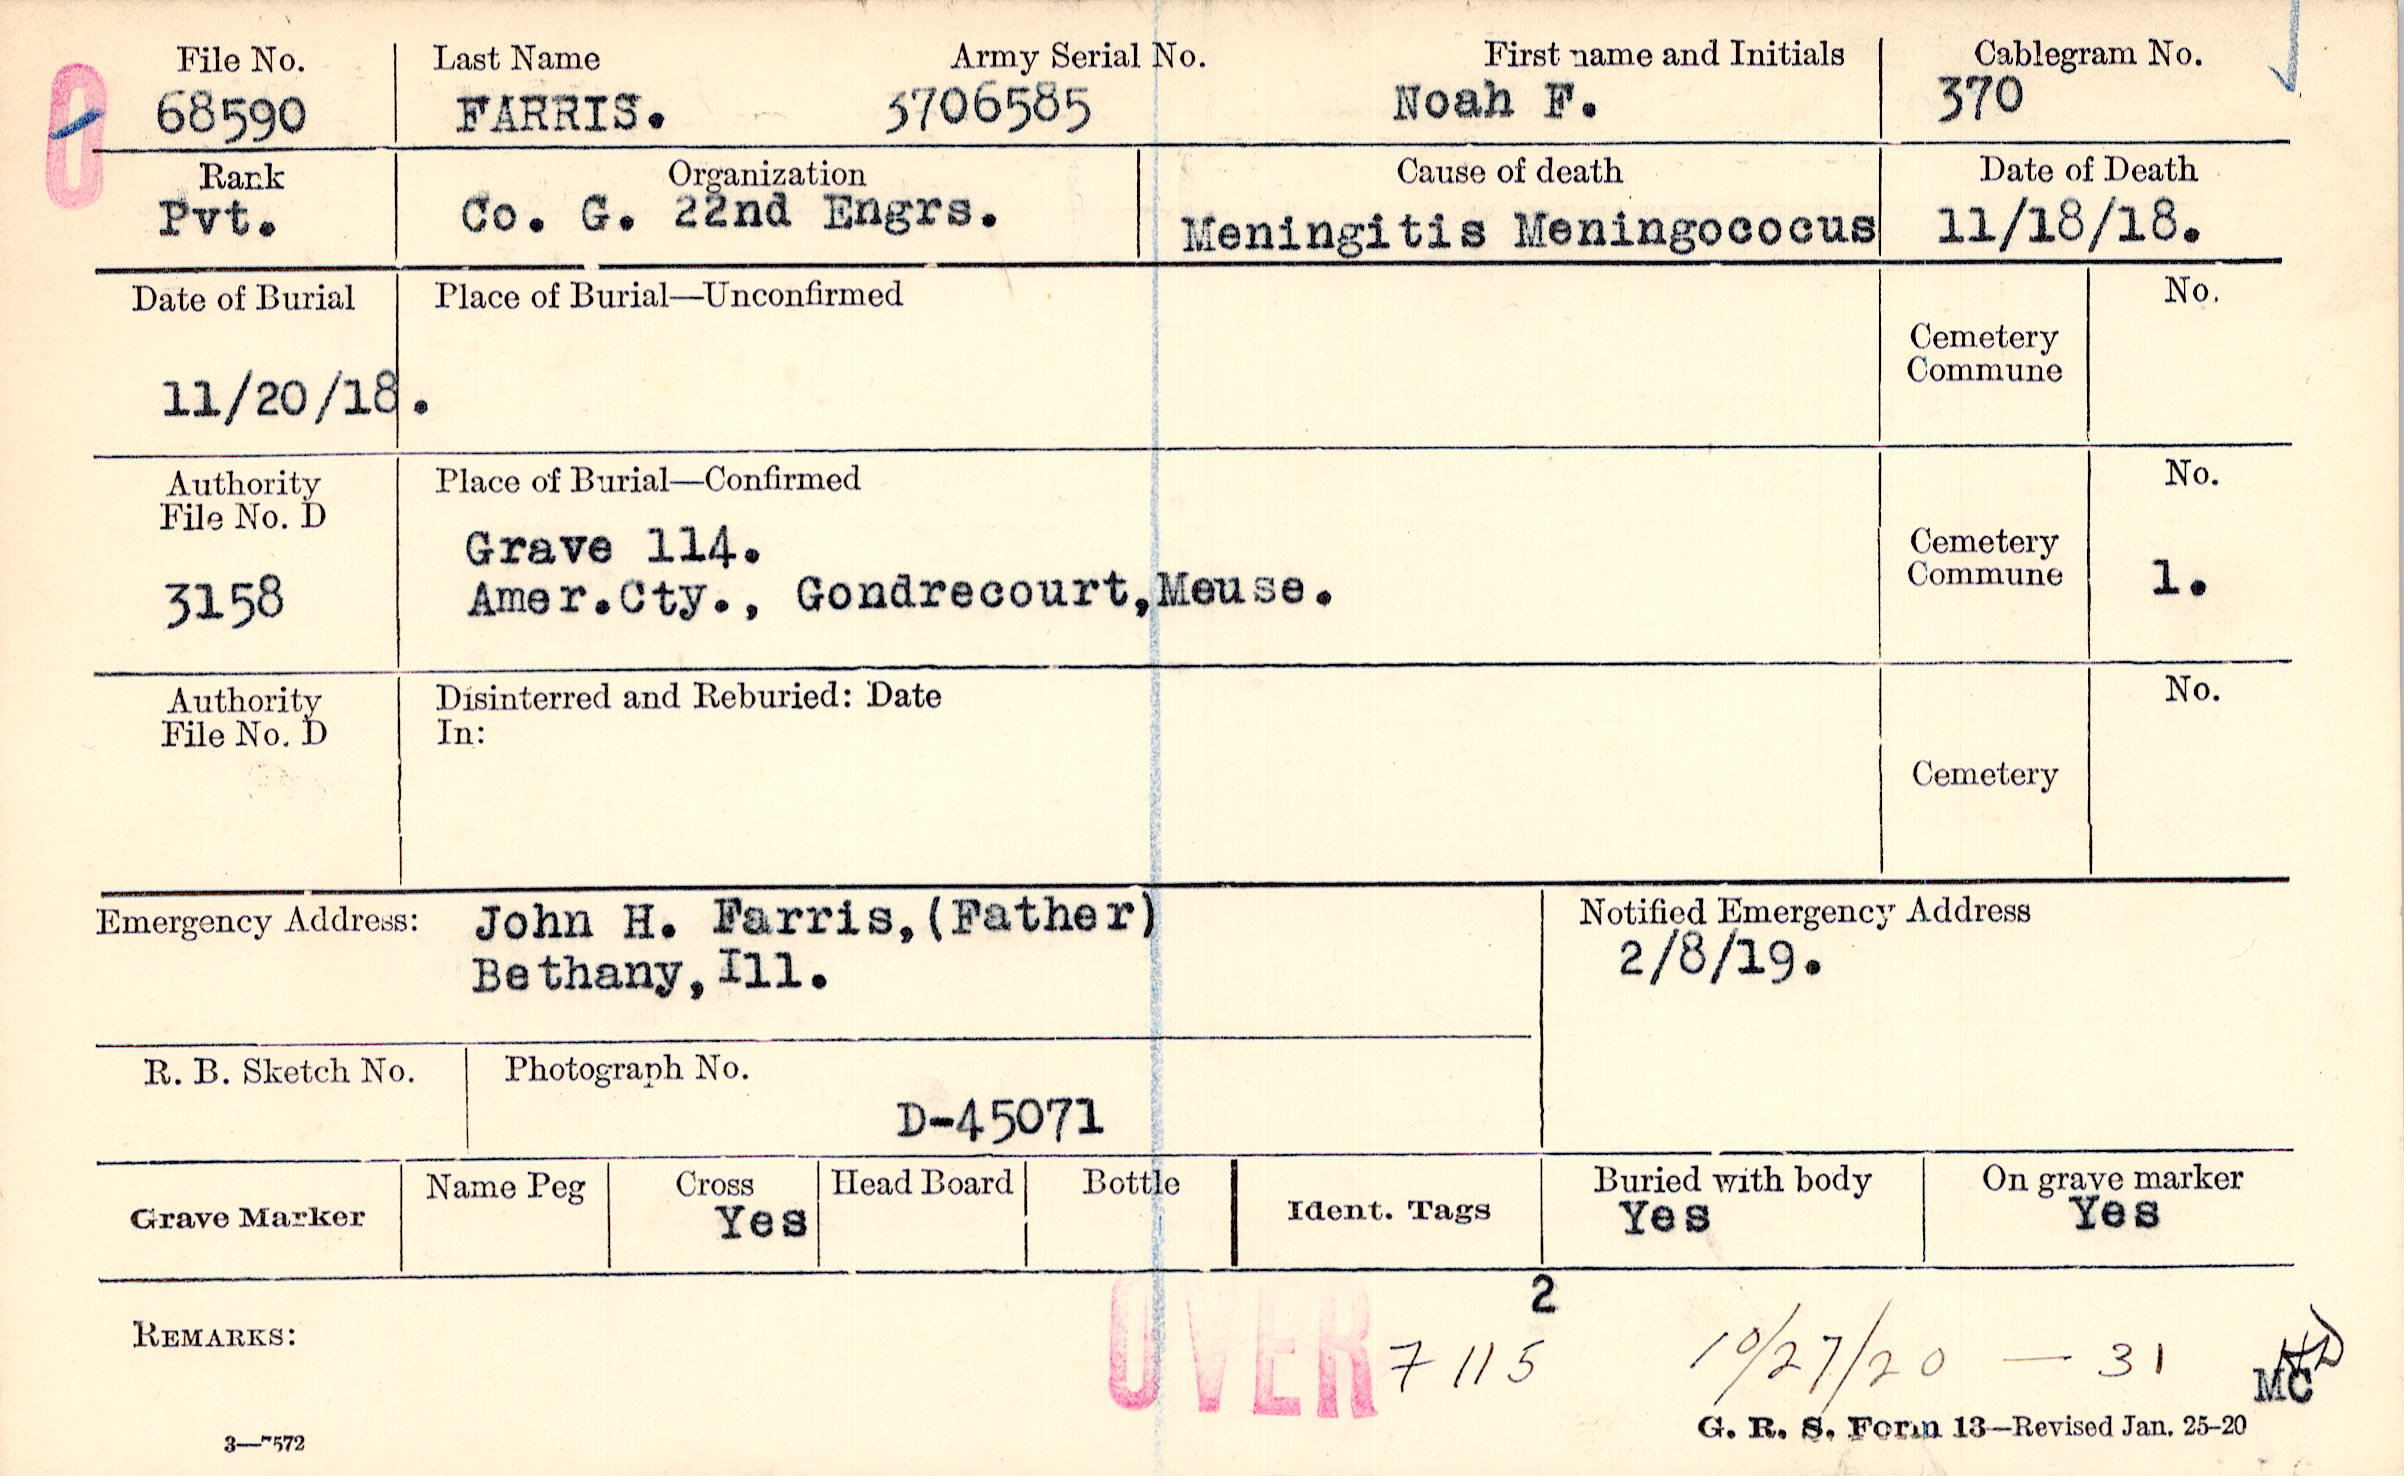 File No. Last Name Army Serial No. First name and Initials Cablegram No.
68590 FARRIS. 3706585 Noah F. 370
Rank Organization Cause of death Date of Death
Pvt. Co. G. 22nd Engrs. Meningitis Meningococus 11/18/18.
Date of Burial Place of Burial—Unconfirmed No.
Cemetery
Commune
11/20/18.
Authority Place of Burial—Confirmed No.
File No. D
Grave 114. Cemetery
3158 Amer.Cty., Gondrecourt,Meuse. Commune 1.
Authority Disinterred and Reburied: Date No.
File No. D In:
Cemetery
Emergency Address: John H. Farris,(Father) Notified Emergency Address
Bethany,Ill. 2/8/19.
R. B. Sketch No. Photograph No.
D-45071
Grave Marker Name Peg Cross Head Board Bottle Ident. Tags Buried with body On grave marker
Yes Yes Yes
2
REMARKS: OVER 7115 10/27/20 — 31
MC
3—7572 G. R. S. Form 13—Revised Jan. 25-20